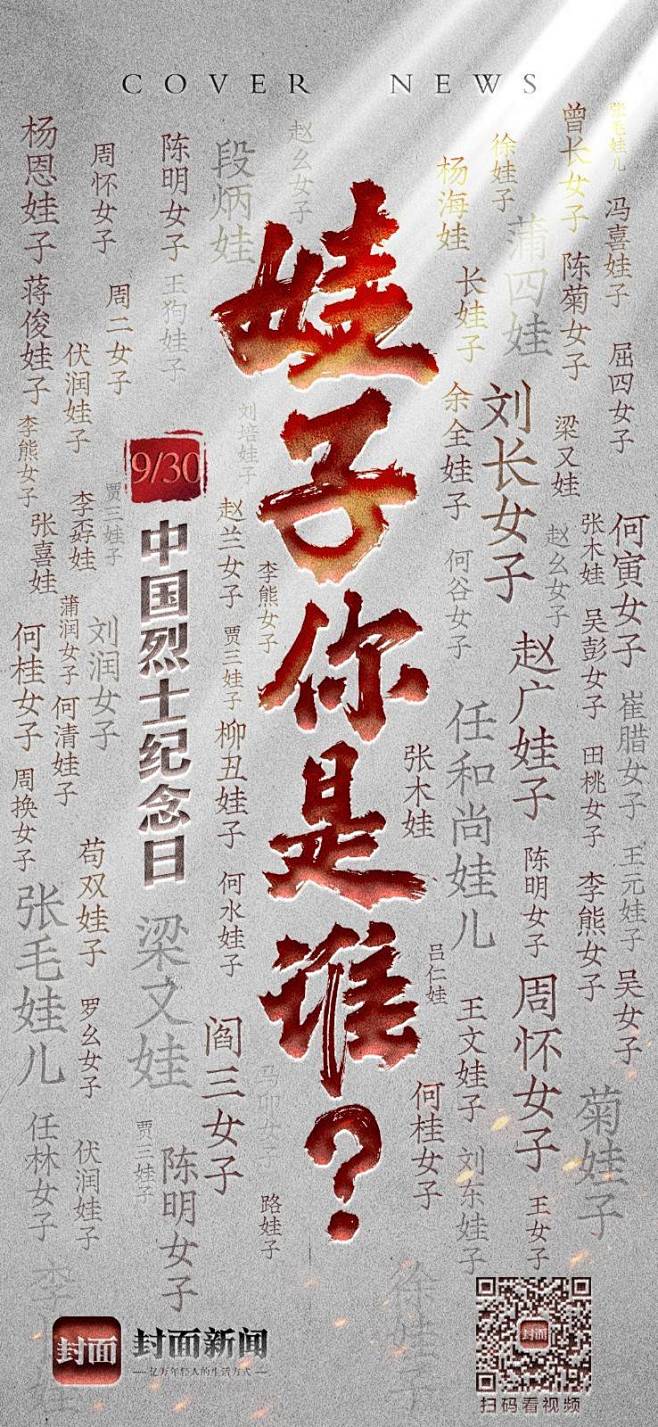 COVER NEWS
娃子你是谁？
9/30
中国烈士纪念日
杨恩娃子
周怀女子
陈明女子
段炳娃
赵幺女子
杨海娃
徐娃子
曾长女子
张毛娃儿
冯喜娃子
蒲四娃
陈菊女子
长娃子
蒋俊娃子
周二女子
王狗娃子
伏润娃子
李熊女子
刘培娃子
余全娃子
刘长女子
梁又娃
屈四女子
贾三娃子
张喜娃
赵兰女子
李熊女子
何谷女子
赵幺女子
张木娃
何寅女子
蒲润女子
刘润女子
何桂女子
何清娃子
贾三娃子
吴彭女子
赵广娃子
崔腊女子
任和尚娃儿
柳丑娃子
张木娃
田桃女子
周换女子
苟双娃子
何水娃子
陈明女子
李熊女子
王元娃子
张毛娃儿
梁文娃
吕仁娃
周怀女子
吴女子
罗幺女子
阎三女子
王文娃子
马卯女子
何桂女子
菊娃子
任林女子
伏润娃子
贾三娃子
陈明女子
路娃子
刘东娃子
王女子
徐娃子
封面
封面新闻
亿万年轻人的生活方式
封面
扫码看视频